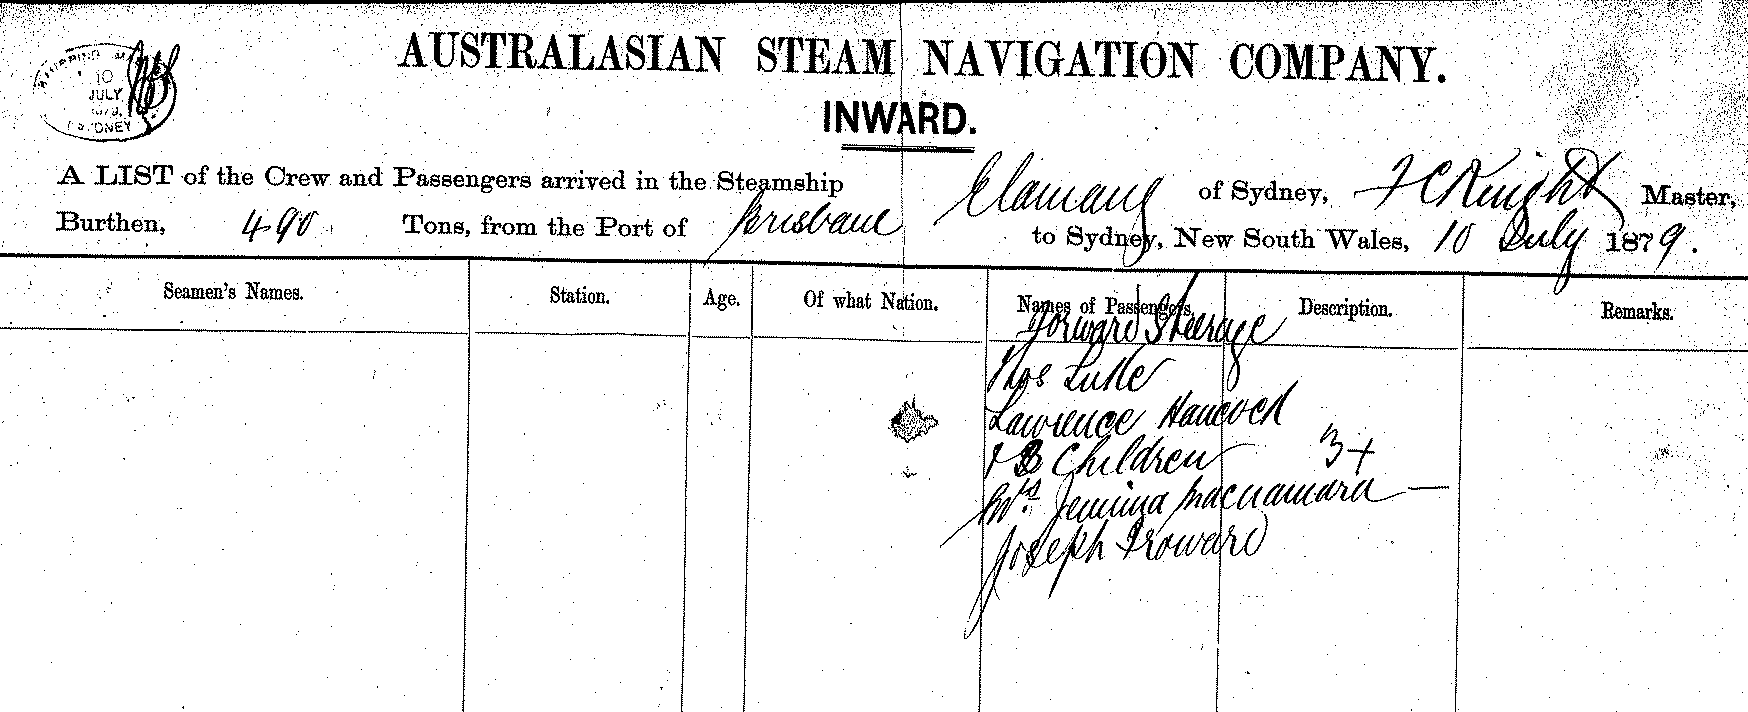 AUSTRALASIAN STEAM NAVIGATION COMPANY.
INWARD.
SHIPPING
10
JULY
1879.
SYDNEY
A LIST of the Crew and Passengers arrived in the Steamship Elamang of Sydney, F C Knight Master,
Burthen, 490 Tons, from the Port of Brisbane to Sydney, New South Wales, 10 July 1879.
Seamen's Names. Station. Age. Of what Nation. Names of Passengers. Description. Remarks.
Forward Steerage
Thos Luke
Lawrence Hancock
Children 3+
Mrs. Jemima Macnamara —
Joseph Froward